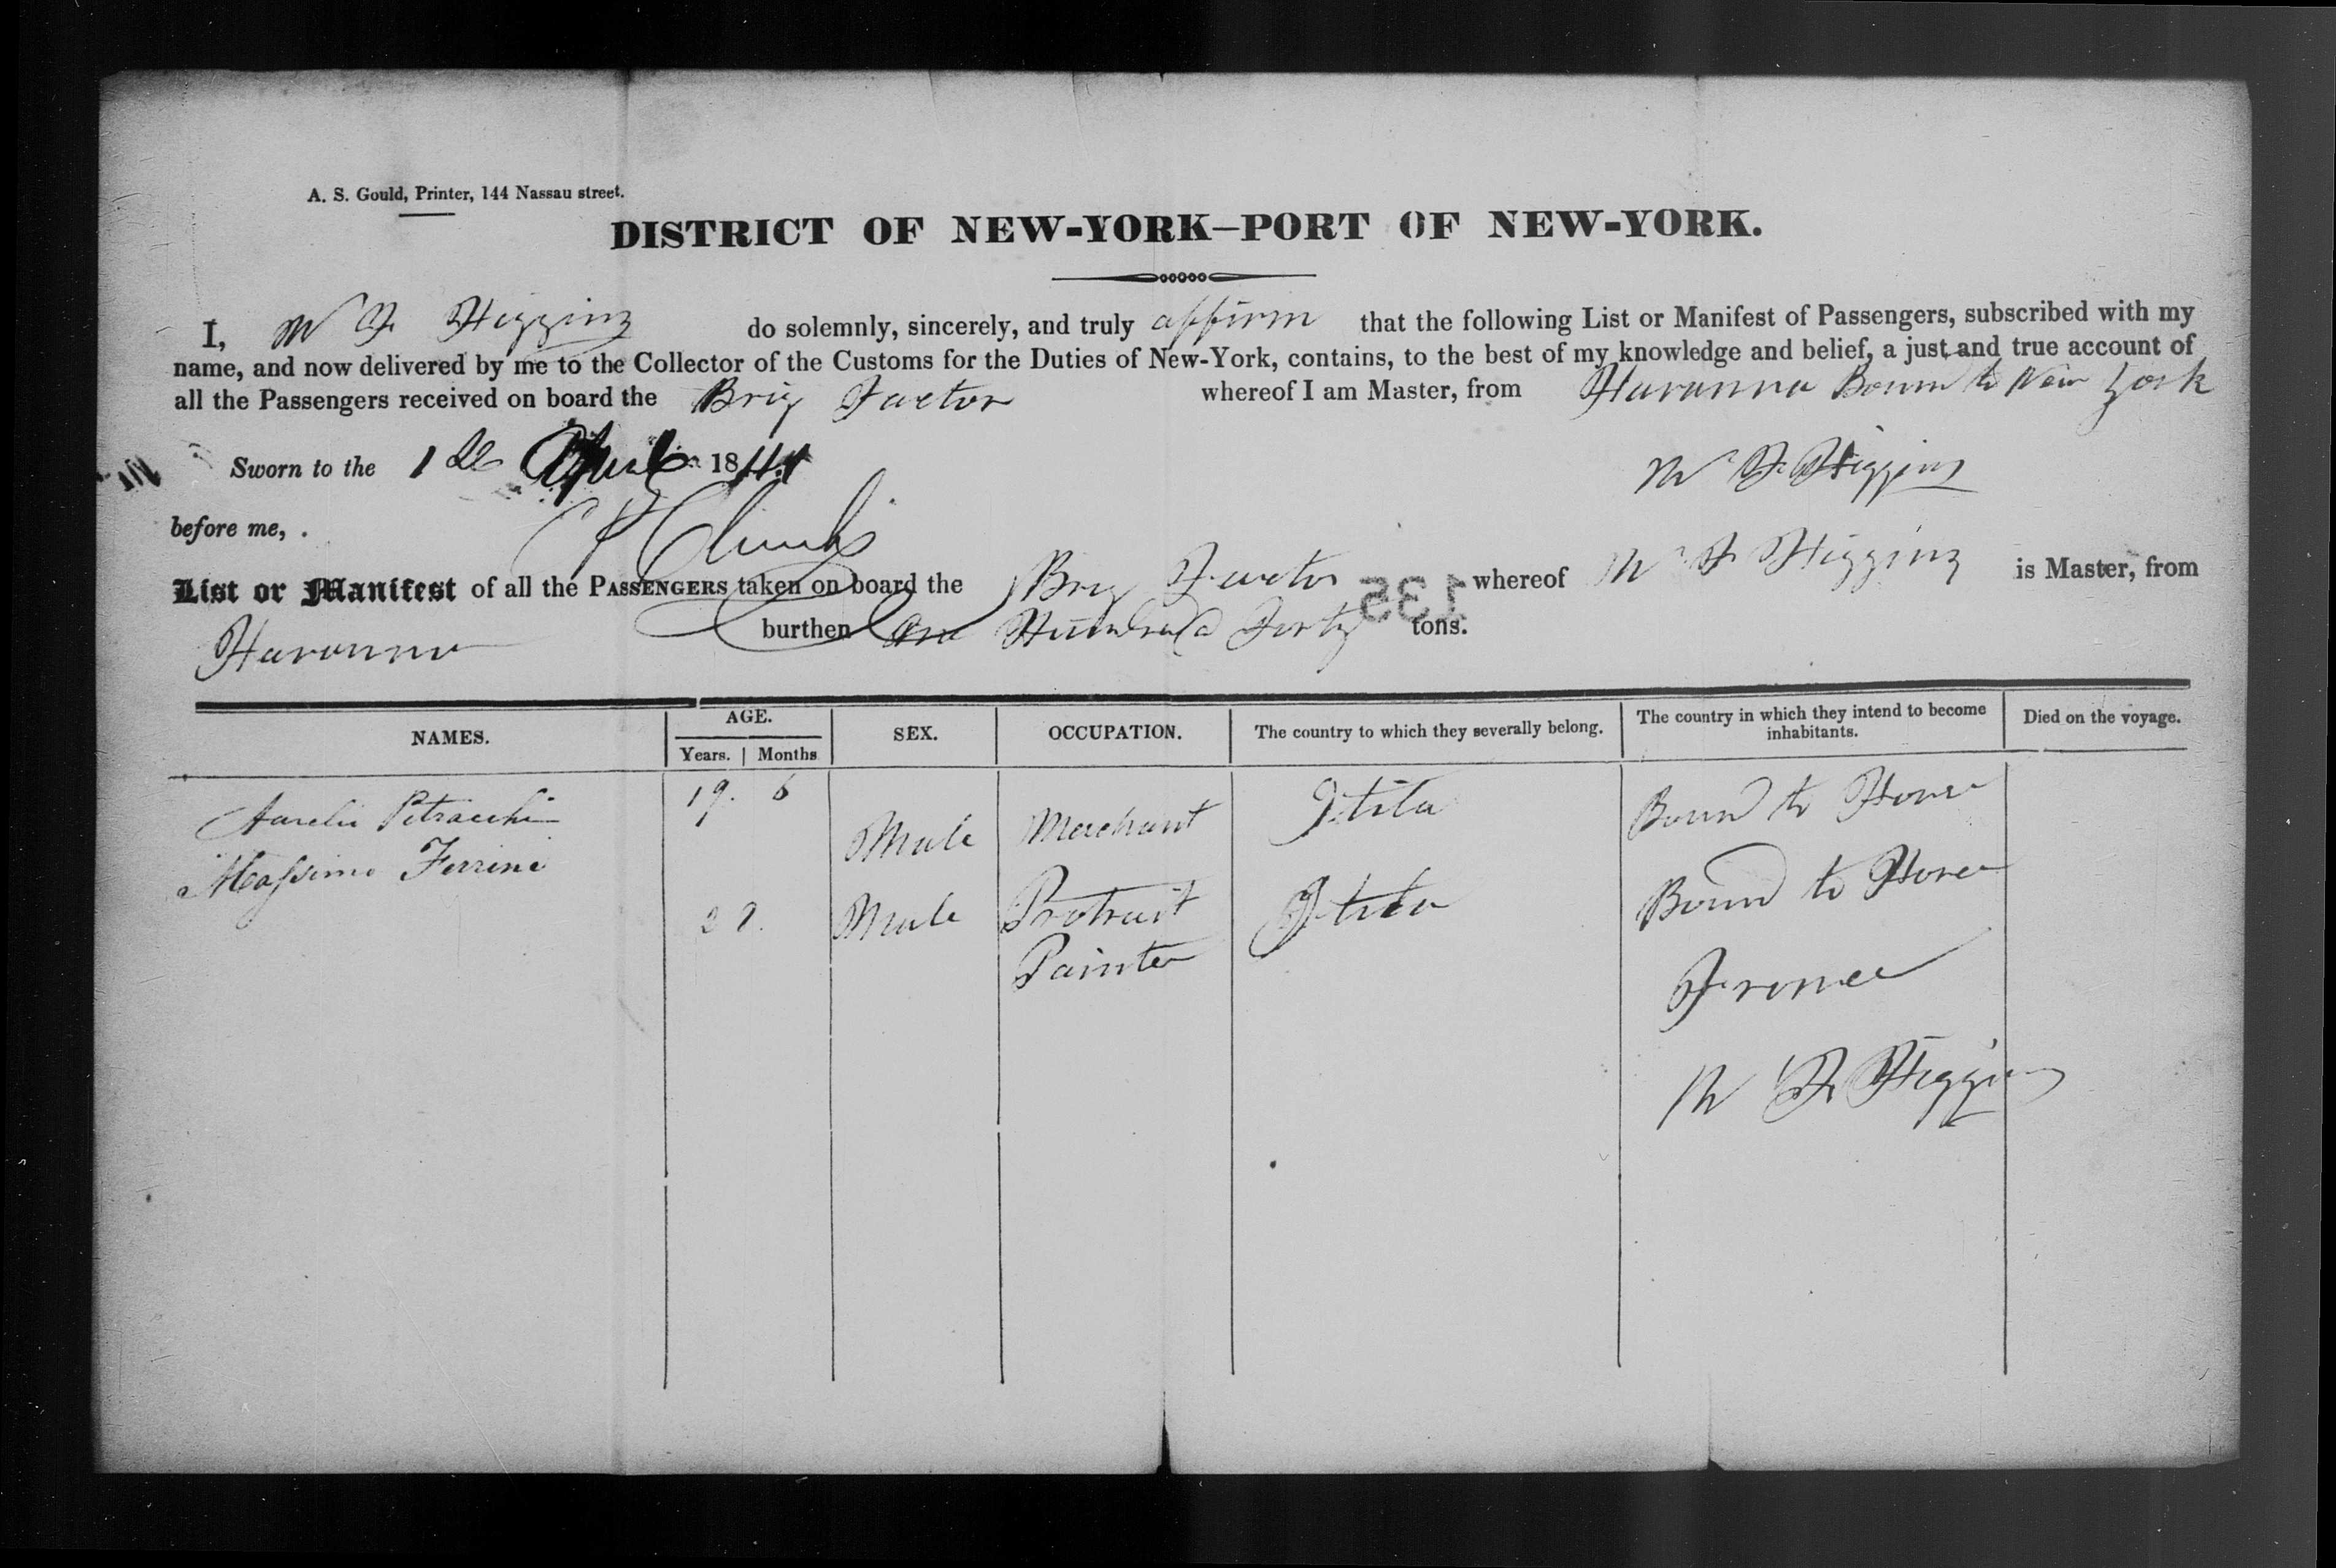 A. S. Gould, Printer, 144 Nassau street.
DISTRICT OF NEW-YORK—PORT OF NEW-YORK.
I, Wm F. Higgins do solemnly, sincerely, and truly affirm that the following List or Manifest of Passengers, subscribed with my
name, and now delivered by me to the Collector of the Customs for the Duties of New-York, contains, to the best of my knowledge and belief, a just and true account of
all the Passengers received on board the Brig Factor whereof I am Master, from Havanna Boun to New York
Sworn to the 1 April 1841
Wm F Higgins
before me,
List or Manifest of all the PASSENGERS taken on board the Brig Factor whereof Wm F Higgins is Master, from
135
Havanna burthen One Hundred Forty tons.
NAMES. AGE. SEX. OCCUPATION. The country to which they severally belong. The country in which they intend to become inhabitants. Died on the voyage.
Years. Months
Aurelio Petracchi 19. 6 Male Merchant Itila Bound to Havre
Massimo Ferrini 27. Male Protrait Itila Bound to Havre
Painter France
Wm F Higgins